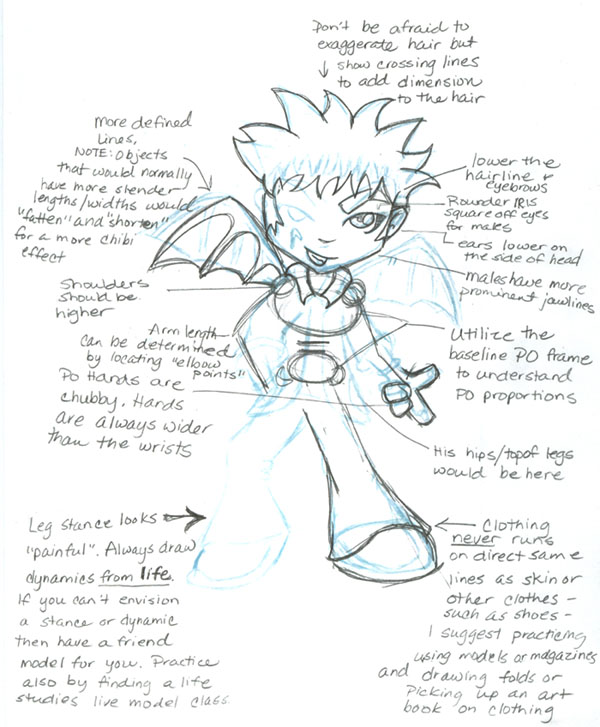 Don't be afraid to
exaggerate hair but
show crossing lines
to add dimension
to the hair
More defined
Lines,
NOTE: Objects
that would normally
have more slender
lengths/widths would
"fatten" and "shorten"
for a more chibi
effect
lower the
hairline &
eyebrows
Rounder IRIS
square off eyes
for males
ears lower on
the side of head
males have more
prominent jawlines
Shoulders
should be
higher
Arm length
can be determined
by locating "elbow
points"
PO Hands are
chubby. Hands
are always wider
than the wrists
Utilize the
baseline PO frame
to understand
PO proportions
His hips/top of legs
would be here
Leg stance looks
"painful". Always draw
dynamics from life.
If you can't envision
a stance or dynamic
then have a friend
model for you. Practice
also by finding a life
studies live model class.
Clothing
never runs
on direct same
lines as skin or
other clothes -
such as shoes -
I suggest practicing
using models or magazines
and drawing folds or
Picking up an art
book on clothing